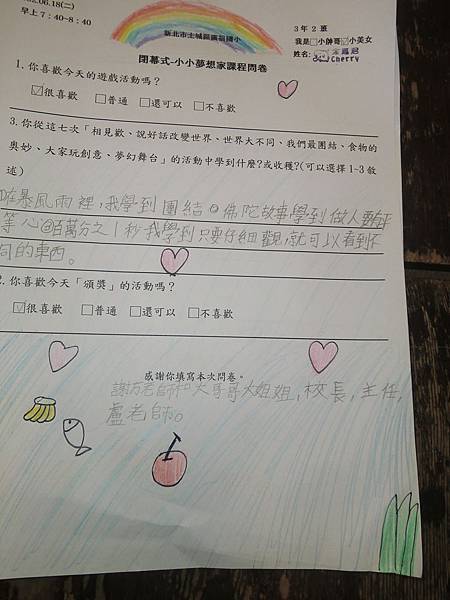 .06.18(二)
早上7:40~8:40
新北市土城區廣福國小
3年2班
我是□小帥哥☑小美女
姓名: Cherry
閉幕式-小小夢想家課程問卷
1. 你喜歡今天的遊戲活動嗎?
☑很喜歡 □普通 □還可以 □不喜歡
3. 你從這七次「相見歡、說好話改變世界、世界大不同、我們最團結、食物的
奧妙、大家玩創意、夢幻舞台」的活動中學到什麼?或收穫?(可以選擇1-3敘
述)
①在暴風雨裡,我學到團結②佛陀故事,學到做人要平
等心③百萬分之1秒我學到只要仔細觀,就可以看到不
同的東西。
2. 你喜歡今天「頒獎」的活動嗎?
☑很喜歡 □普通 □還可以 □不喜歡
感謝你填寫本次問卷。
謝方老師和大哥哥大姐姐,校長,主任,
盧老師。